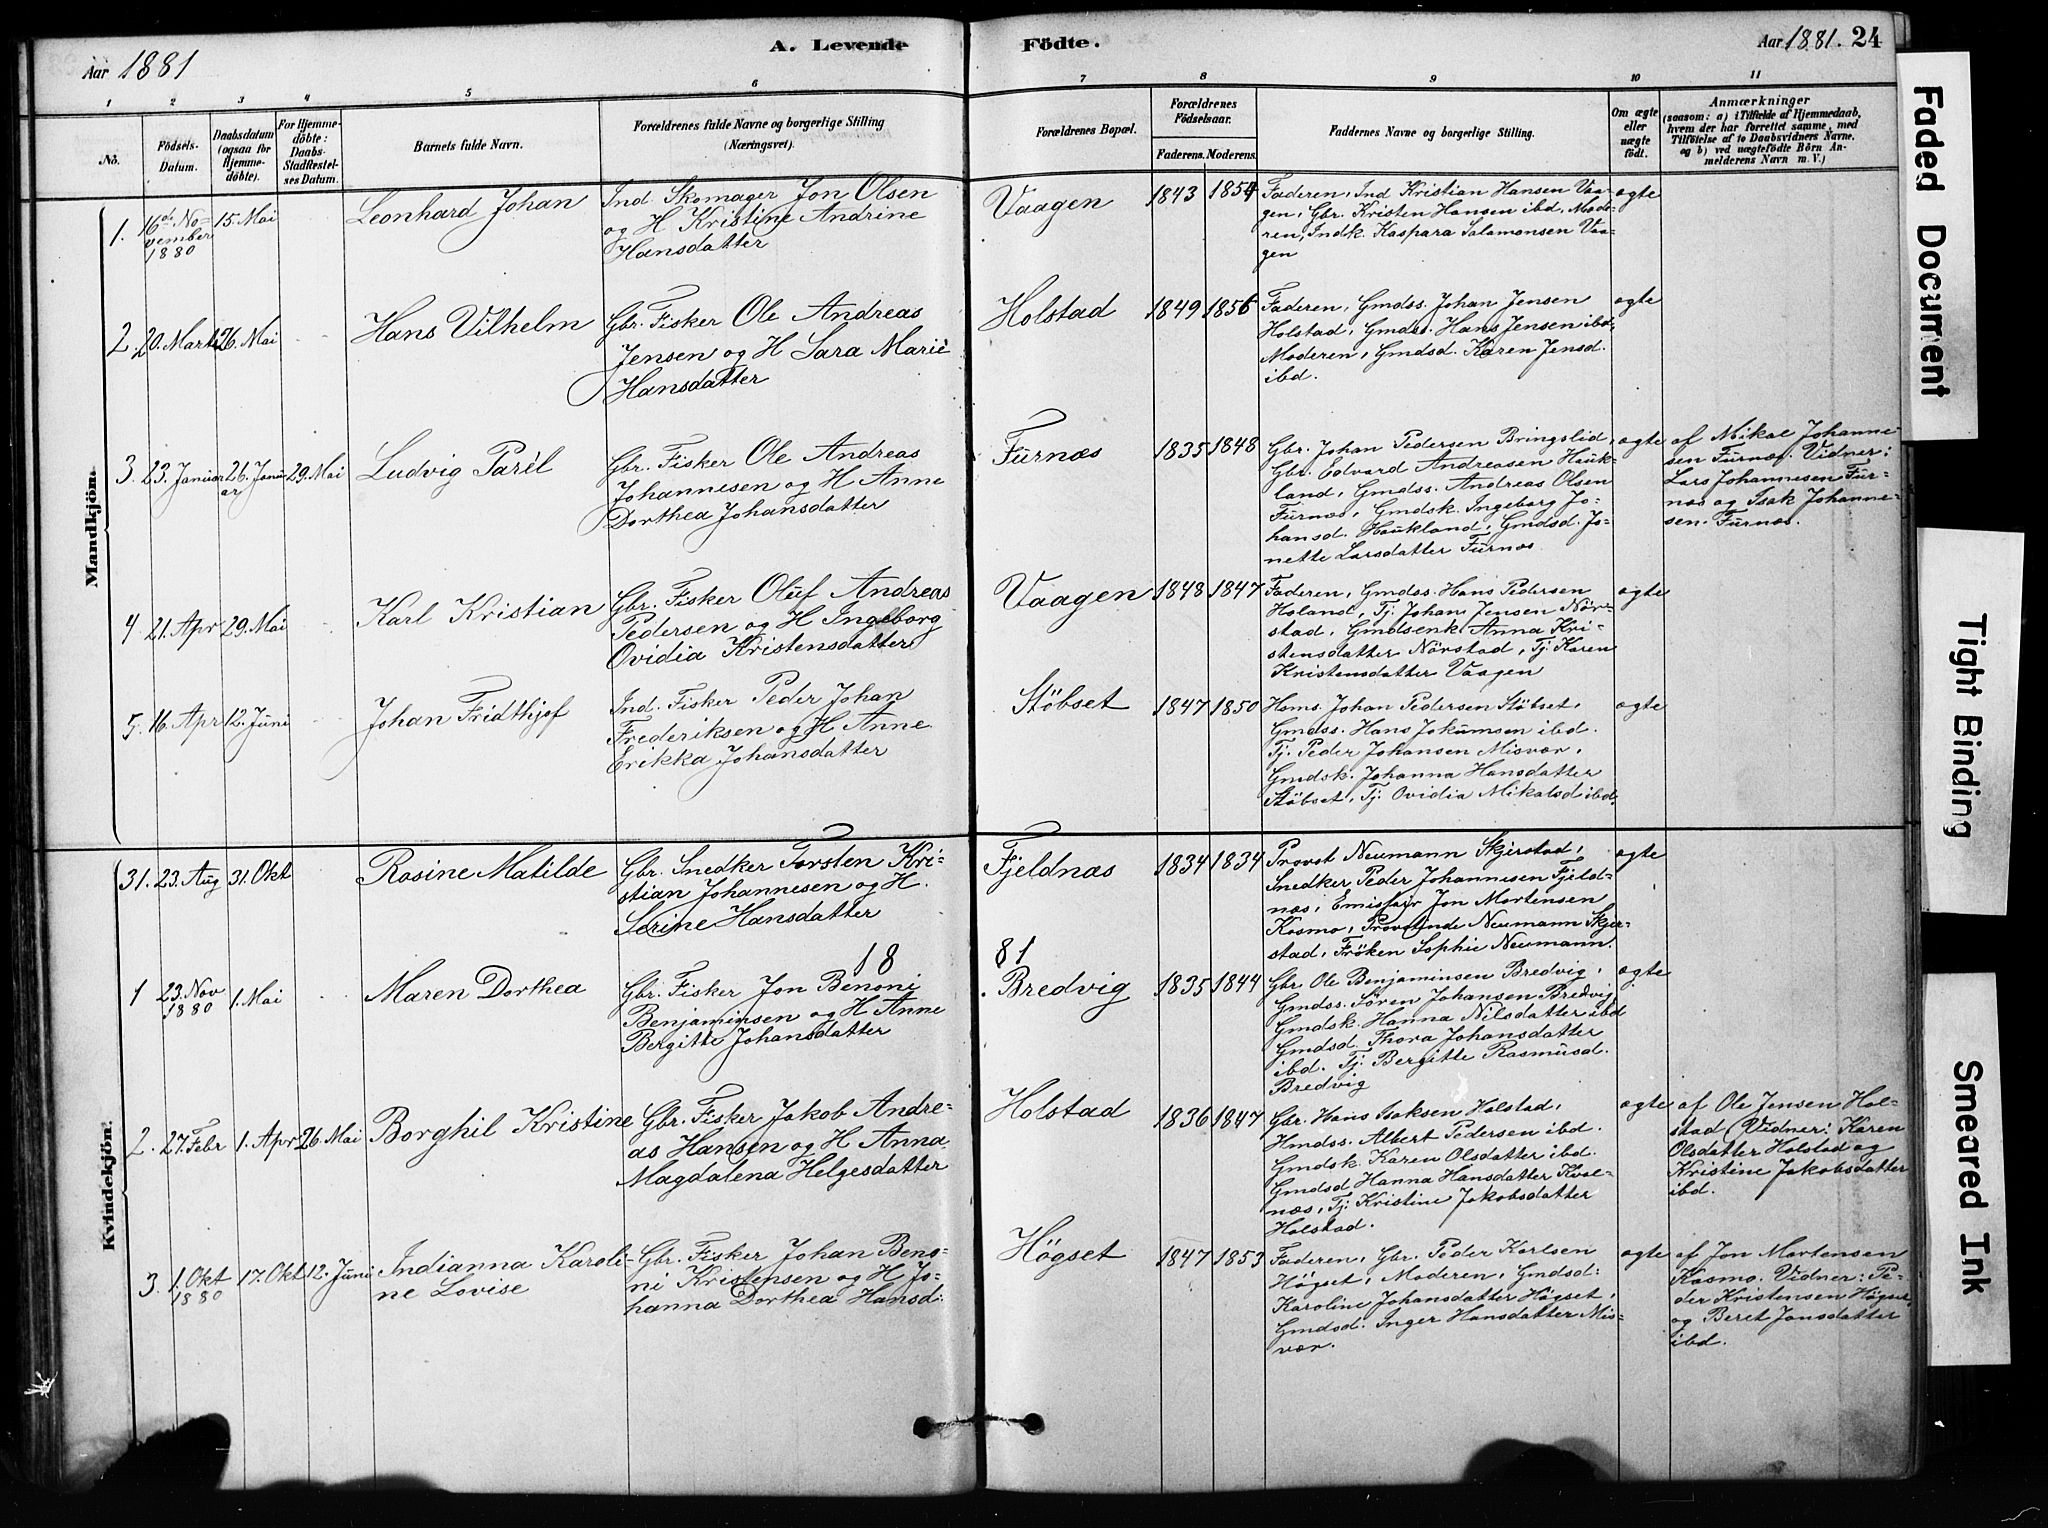 Aar 1881
A. Levende
Födte.
Aar 1881. 24
1 2 3 4 5 6 7 8 9 10 11
No.
Födsels-
Datum.
Daabsdatum
(ogsaa for
Hjemme-
döbte).
For Hjemme-
döbte:
Daabs-
Stadfæstel-
ses Datum.
Barnets fulde Navn.
Forældrenes fulde Navne og borgerlige Stilling
(Næringsvei).
Forældrenes Bopæl.
Forældrenes
Födselsaar.
Faderens. Moderens.
Faddernes Navne og borgerlige Stilling.
Om ægte
eller
uægte
födt.
Anmærkninger
(saasom: a) i Tilfælde af Hjemmedaab,
hvem der har forrettet samme, med
Tilföielse af to Daabsvidners Navne.
og b) ved uægtefödte Börn An-
melderens Navn m. V.)
Mandkjön.
1.
16de No-
vember
1880
15. Mai
Leonhard Johan
Ind Skomager Jon Olsen
og H Kristine Andrine
Hansdatter
Vaagen
1843
1854
Faderen, Ind Kristian Hansen Vaa-
gen, Gbr. Kristen Hansen ibd, Mode-
ren, Indk. Kaspara Salamonsen Vaa-
gen
ægte
2.
20. Marts
26. Mai
Hans Vilhelm
Gbr. Fisker Ole Andreas
Jensen og H Sara Marie
Hansdatter
Holstad
1849
1856
Faderen, Gmdss. Johan Jensen
Holstad, Gmdss. Hans Jensen ibd,
Moderen, Gmdsd. Karen Jensd.
ibd.
ægte
3
23. Januar
26. Janu
ar
29. Mai
Ludvig Parèl
Gbr. Fisker Ole Andreas
Johannesen og H Anne
Dorthea Johansdatter
Furnæs
1835
1848
Gbr. Johan Pedersen Bringslid,
Gbr. Edvard Andreasen Hauk-
land, Gmdss. Andreas Olsen
Furnæs, Gmdsk. Ingeborg Jo-
hansd. Haukland, Gmdsd. Jo-
nette Larsdatter Furnæs
ægte
af Mikal Johanne-
sen Furnæs. Vidner:
Lars Johannesen Fur-
næs og Isak Johanne-
sen. Furnæs.
4
21. Apr
29. Mai
Karl Kristian
Gbr. Fisker Oluf Andreas
Pedersen og H Ingeborg
Ovidia Kristensdatter
Vaagen
1848
1847
Faderen, Gmdss. Hans Pedersen
Holand, Tj. Johan Jensen Nör-
stad, Gmdsenk. Anna Kri-
stensdatter Nörstad, Tj. Karen
Kristensdatter Vaagen
ægte
5
16. Apr
12. Juni
Johan Fridthjof
Ind. Fisker Peder Johan
Frederiksen og H Anne
Erikka Johansdatter
Stöbset
1847
1850
Hams. Johan Pedersen Stöbset,
Gmdss. Hans Jokumsen ibd.
Tj. Peder Johansen Misvær,
Gmdsk. Johanna Hansdatter
Stöbset, Tj. Ovidia Mikalsd ibd.
ægte
31.
23. Aug
31. Okt
Rosine Matilde
Gbr. Snedker Torsten Kri-
stian Johannesen og H.
Serine Hansdatter
Fjeldnæs
1834
1834
Provst Neumann Skjerstad,
Snedker Peder Johannesen Fjeld-
næs, Emissær Jon Mortensen
Kosmo, Provstinde Neumann Skjer-
stad, Fröken Sophie Neumann.
ægte
18 81
Kvindekjön.
1
23. Nov
1880
1. Mai
Maren Dorthea
Gbr. Fisker Jon Benoni
Benjaminsen og H Anne
Bergitte Johansdatter
Bredvig
1835
1844
Gbr. Ole Benjaminsen Bredvig,
Gmdss. Sören Johansen Bredvig
Gmdsk. Hanna Nilsdatter ibd
Gmdsd. Thora Johansdatter
ibd. Tj. Bergitte Rasmusd.
Bredvig
ægte
2.
27. Febr
1. Apr
26. Mai
Borghil Kristine
Gbr. Fisker Jakob Andre-
as Hansen og H Anna
Magdalena Helgesdatter
Holstad
1836
1847
Gbr. Hans Isaksen Holstad,
Hmdss. Albert Pedersen ibd.
Gmdsk. Karen Olsdatter ibd.
Gmdsd Hanna Hansdatter Kval-
næs, Tj. Kristine Jakobsdatter
Holstad.
ægte
af Ole Jensen Hol-
stad, Vidner: Karen
Olsdatter Holstad og
Kristine Jakobsdatter
ibd.
3.
1. Okt
1880
17. Okt
12. Juni
Indianna Karoli-
ne Lovise
Gbr. Fisker Johan Beno-
ni Kristensen og H Jo-
hanna Dorthea Hansd.
Högset
1847
1853
Faderen, Gbr. Peder Karlsen
Högset, Moderen, Gmdsd:
Karoline Johansdatter Högset,
Gmdsd. Inger Hansdatter Mis-
vær.
ægte
af Jon Mortensen
Kosmo. Vidner: Pe-
der Kristensen Högset,
og Beret Jonsdatter
ibd.
Faded Document
Tight Binding
Smeared Ink